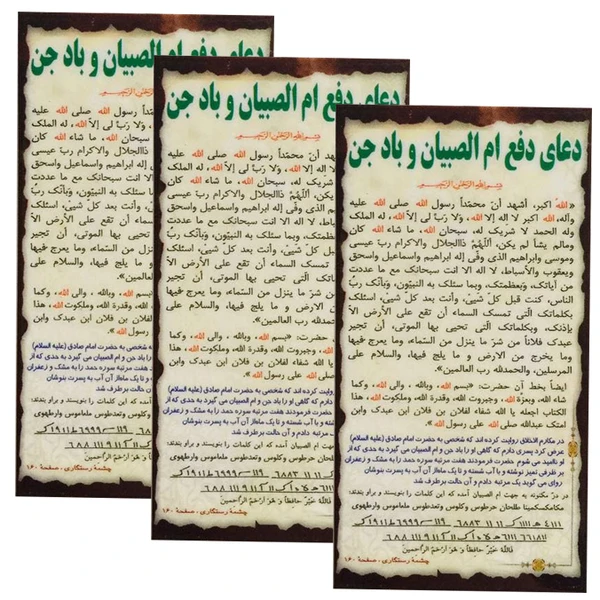 دعای دفع ام الصبیان و باد جن
بسم الله الرحمن الرحیم
«الله اکبر، أشهد أنّ محمّداً رسول الله صلی الله علیه
وآله، الله اکبر لا اله إلا الله، ولا رَبَّ لی إلاّ الله، له الملک
وله الحمد لا شریک له، سبحان الله، ما شاء الله کان
ومالم یشأ لم یکن، اَللّهُمَّ ذاالجلال والاکرام ربّ عیسی
وموسی وابراهیم الذی وفّی اله ابراهیم واسماعیل واسحق
ویعقوب والأسباط، لا اله الا انت سبحانک مع ما عددت
من آیاتک، وبعظمتک، وبما سئلک به النبیّون، وبأنّک ربّ
الناس، کنت قبل کلّ شَیئ، وأنت بعد کلّ شیئ، اسئلک
بکلماتک الّتی تمسک السماء أن تقع علی الأرض الاّ
بإذنک، وبکلماتک الّتی تحیی بها الموتی، أن تجیر
عبدک فلاناً من شرّ ما ینزل من السّماء، وما یعرج فیها
وما یخرج من الارض و ما یلج فیها، والسلام علی
المرسلین، والحمدلله رب العالمین».
ایضاً بخط آن حضرت: «بسم الله، وبالله، والی الله، وکما
شاء الله، وبعزة الله، وجبروت الله، وقدرة الله، وملکوت الله، هذا
الکتاب اجعله یا الله شفاء لفلان بن فلان ابن عبدک وابن
امتک عبدالله صلی الله علی رسول الله
در مکارم الاخلاق روایت کرده اند که شخصی به حضرت امام صادق (علیه السلام)
عرض کرد پسری دارم که گاهی او را باد جن و ام الصبیان می گیرد به حدی که از
او ناامید می شوم حضرت فرمودند هفت مرتبه سوره حمد را به مشک و زعفران
بر ظرفی تمیز نوشته و با آب شسته و تا یک ماه از آن آب به پسرت بنوشان
روای می گوید یک مرتبه دادم و آن حالت برطرف شد
در درّ مکنونه به جهت ام الصبیان آمده که این کلمات را بنویسد و براو بندند:
فَاللّهُ خَیْرٌ حافِظاً وَ هُوَ اَرْحَمُ الرّاحِمینَ
چشمهٔ رستگاری، صفحهٔ ۱۶۰